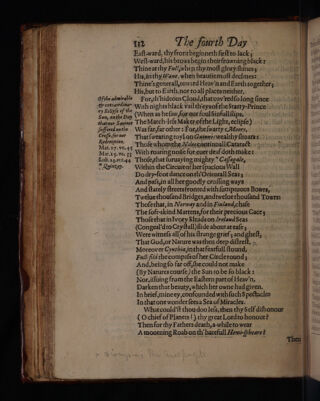 112 The fourth Day
East-ward, thy front begineth first to lack;
West-ward, his brows begin their frowning black:
Thine at thy Full, when thy most glory shines;
His, in thy Wane, when beautie most declines:
Thine's generall, toward Heav'n and Earth together;
His, but to Earth, nor to all places neither.
Of the admirable
& extraordinary
Eclipse of the
Sun, on the Day
that our Saviour
suffered on the
Crosse for our
Redemption.
Mat. 27. vs. 45
Mar. 15. vs. 33
Luk. 23. vs. 44
For, th' hideous Cloud, that cov'red so long since
With nights black vail th' eyes of the Starry-Prince
(When as he saw, for our foul Sinfull slips,
The March-less Maker of the Light, eclipse)
Was far, far other: For, the swarty Moors,
That sweating toyl on Guinnes wealthy shoars:
Those whom the Niles continuall Cataract
With roaring noise for ever deaf doth make:
Those, that surveying mighty Cassagale,
Within the Circuit of her spacious Wall
Do dry-foot dance on th' Orientall Seas;
And pass, in all her goodly crossing ways
And stately streets fronted with sumptuous Bowrs,
Twelue thousand Bridges, and twelue thousand Towrs:
Those that, in Norway and in Finland, chase
The soft-skind Martens, for their precious Case;
Those that in Ivory Sleads on Ireland Seas
(Congeal'd to Crystall) slide about at ease;
Were witness all of his strange grief; and ghest,
That God, or Nature was then deep distrest.
Moreover Cynthia, in that fearfull stound,
Full-fild the compass of her Circle round;
And, being so far off, she could not make
(By Natures course) the Sun to be so black;
Nor, issuing from the Eastern part of Heav'n,
Darken that beauty, which her own had given.
In brief, mine ey, confounded with such Spectacles
In that one wonder sees a Sea of Miracles.
What could'st thou doo less, then thy Self dishonour
(O chief of Planets!) thy great Lord to honour?
Then for thy Fathers death, a-while to wear
A mourning Roab on th' hatefull Hemi-spheare?
Then